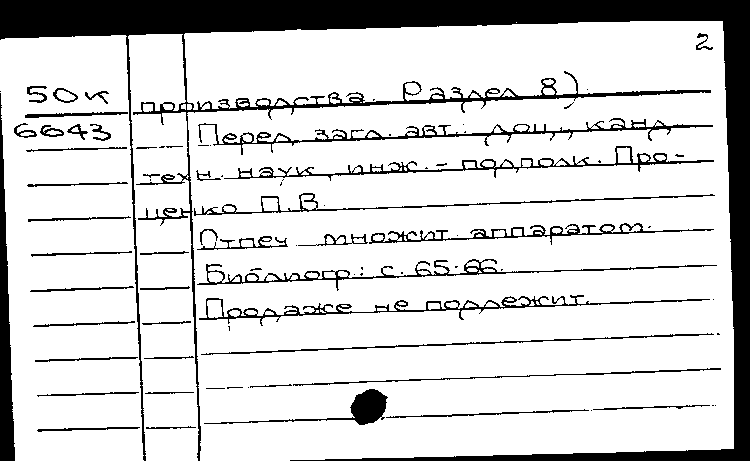 2
50к производства. Раздел 8)
6643 Перед загл. авт.: доц., канд.
техн. наук, инж.-подполк. Про-
ценко П.В.
Отпеч. множит. аппаратом.
Библиогр.: с. 65-66.
Продаже не подлежит.